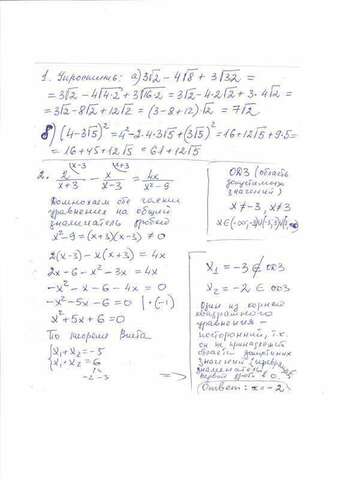 1. Упростить: а) 3√2 - 4√8 + 3√32 =
= 3√2 - 4√4·2 + 3√16·2 = 3√2 - 4·2√2 + 3·4√2 =
= 3√2 - 8√2 + 12√2 = (3-8+12)√2 = 7√2
б) (4-3√5)² = 4² - 2·4·3√5 + (3√5)² = 16 + 12√5 + 9·5 =
= 16 + 45 + 12√5 = 61 + 12√5
2. 2/(x+3) (x-3 - x/(x-3) (x+3 = 4x/(x²-9)
Домножаем обе части
уравнения на общий
знаменатель дробей
x²-9 = (x+3)(x-3) ≠ 0
2(x-3) - x(x+3) = 4x
2x - 6 - x² - 3x = 4x
-x² - x - 6 - 4x = 0
-x² - 5x - 6 = 0 | ·(-1)
x² + 5x + 6 = 0
По теореме Виета
{x₁ + x₂ = -5
{x₁·x₂ = 6
-2 -3
=>
ОДЗ (область
допустимых
значений)
x ≠ -3, x ≠ 3
x₁ = -3 ∉ ОДЗ
x₂ = -2 ∈ ОДЗ
Один из корней
квадратного
уравнения -
посторонний, т.к.
он не принадлежит
области допустимых
значений
знаменатель
первой дроби в 0.
(Ответ: x = -2)